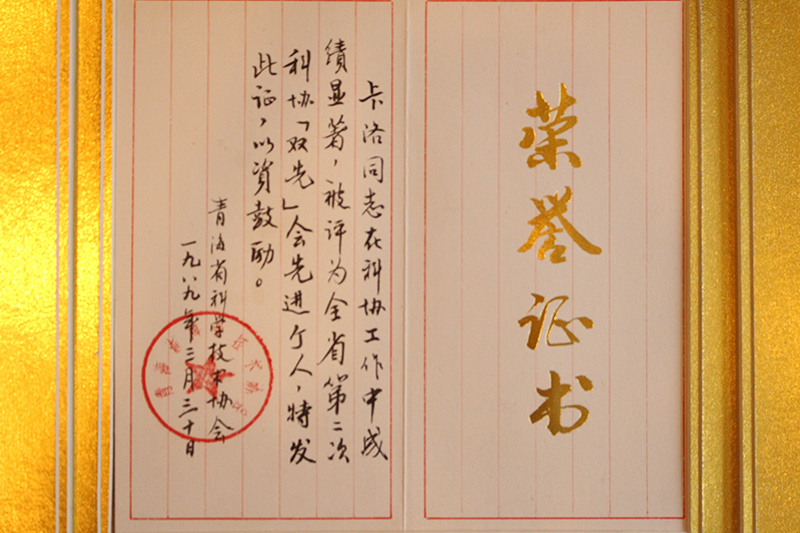 荣誉证书
卡洛同志在科协工作中成
绩显著，被评为全省第二次
科协「双先」会先进个人，特发
此证，以资鼓励。
青海省科学技术协会
一九八九年三月三十日